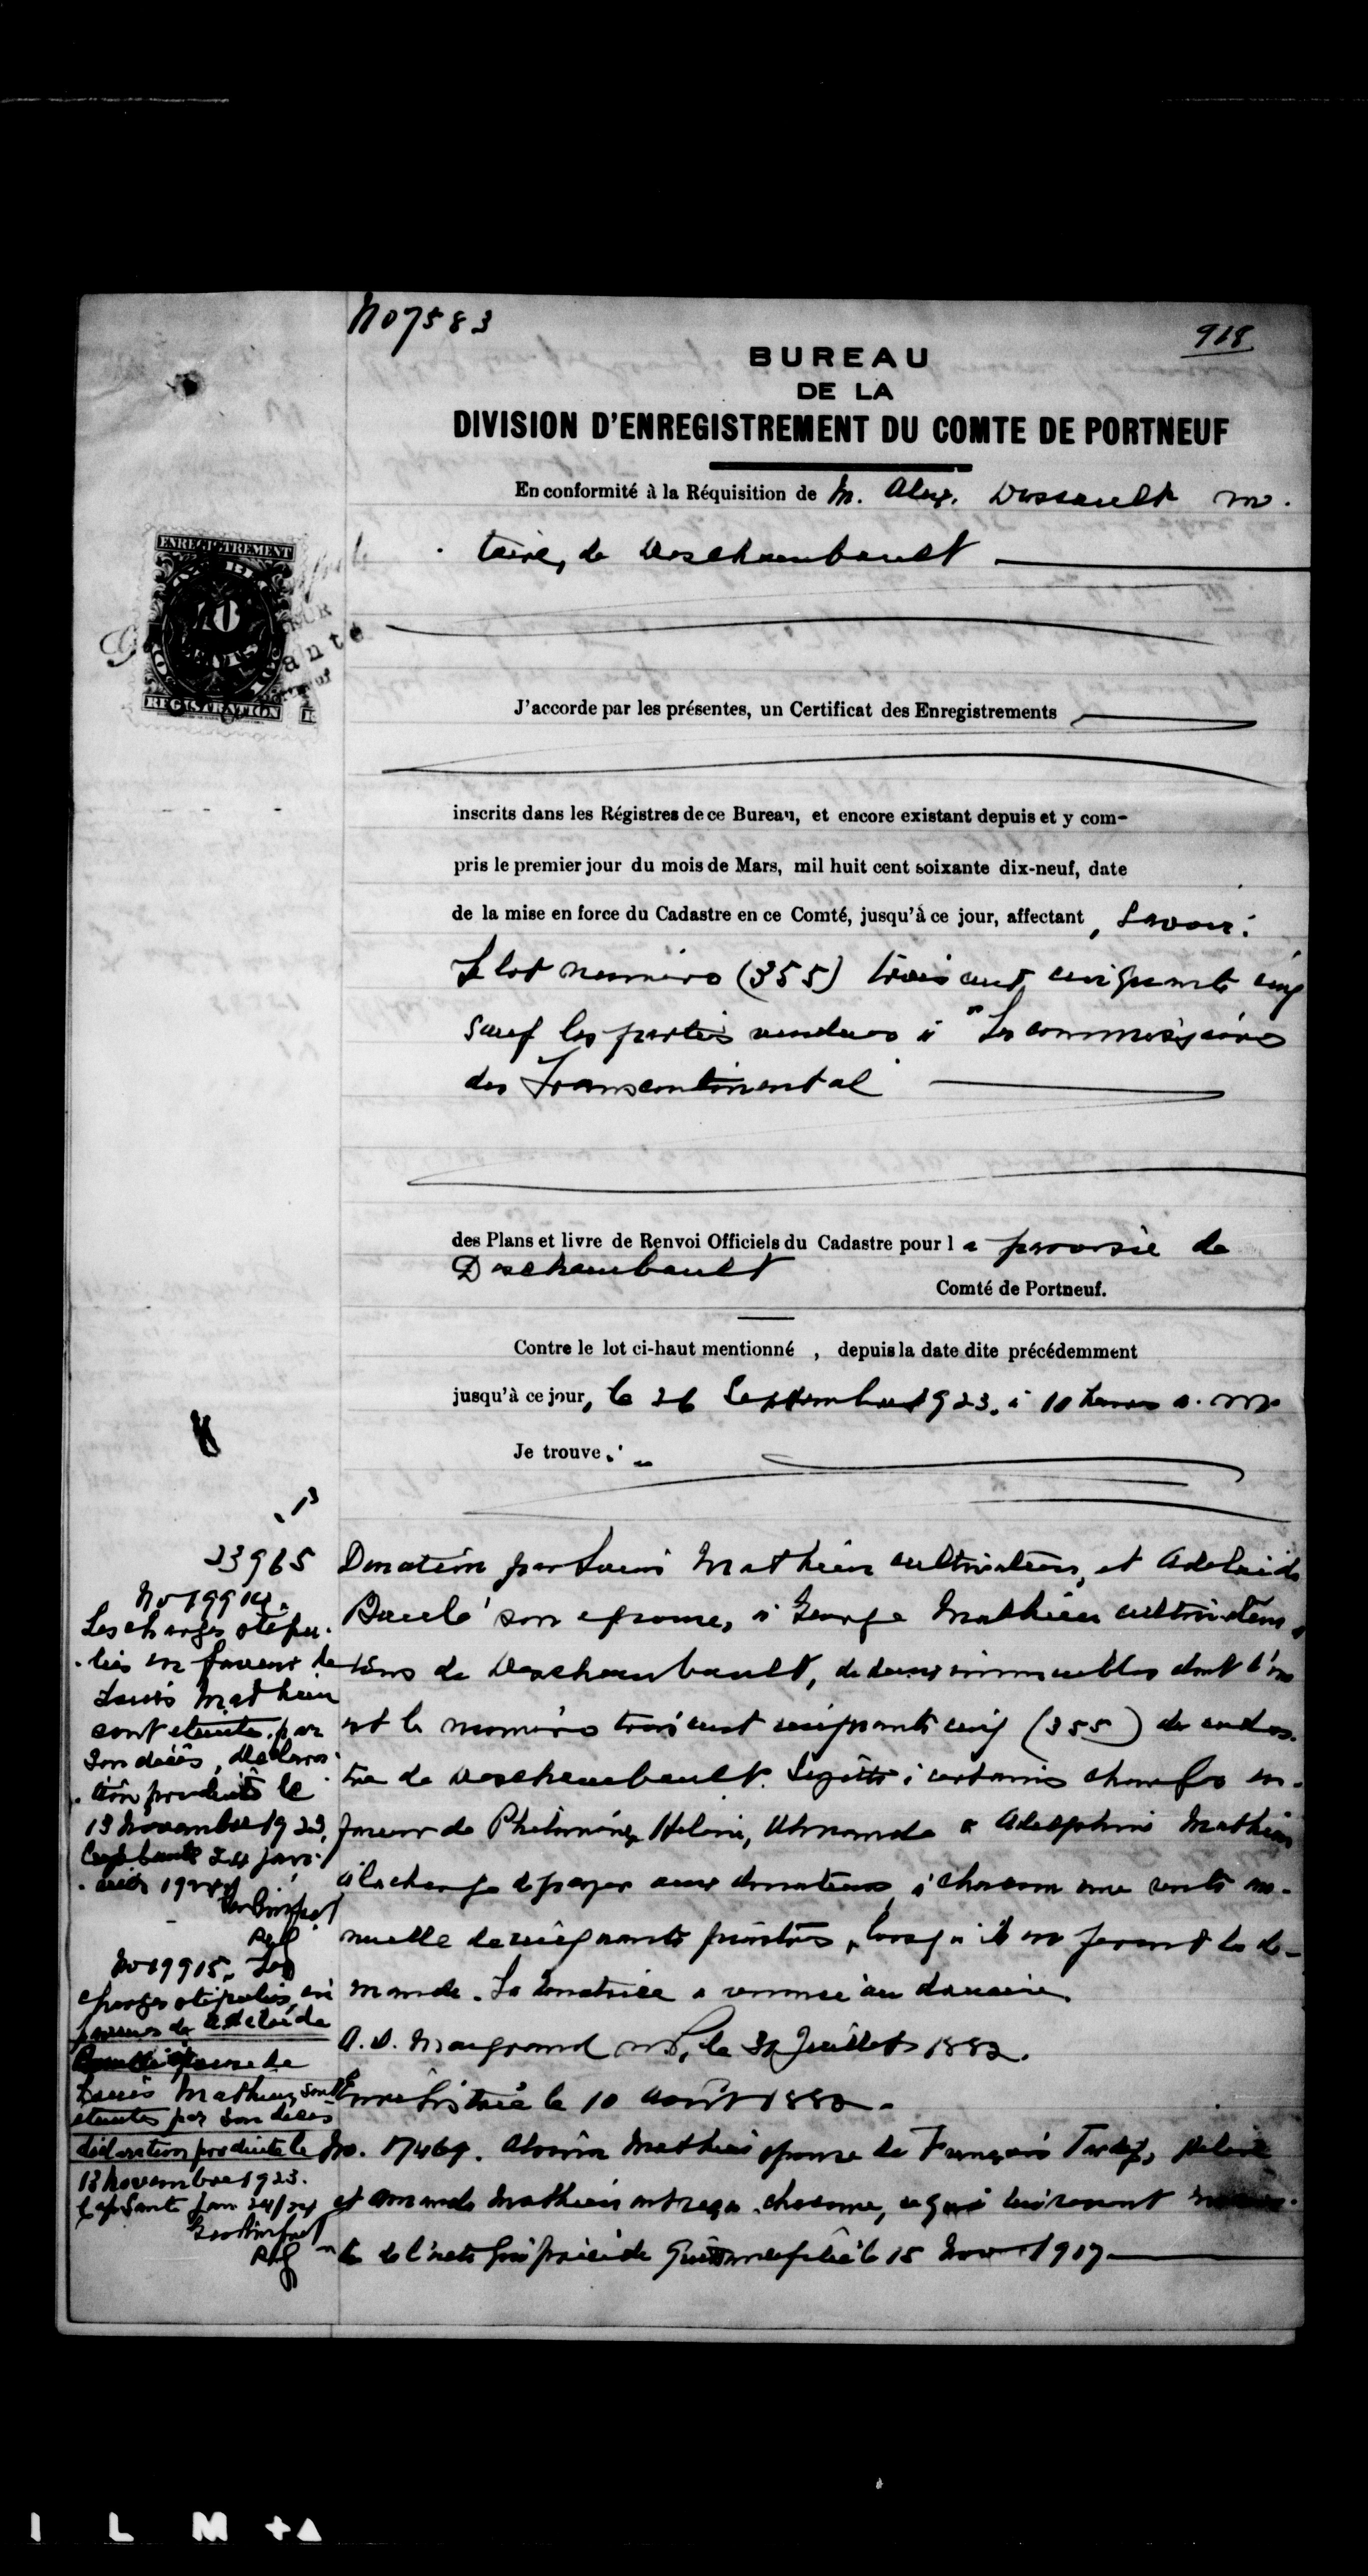 No 7583
918
BUREAU
DE LA
DIVISION D'ENREGISTREMENT DU COMTE DE PORTNEUF
En conformité à la Réquisition de M. Alex. Dussault no-
taire, de Deschambault
ENREGISTREMENT
REGISTRATION
J'accorde par les présentes, un Certificat des Enregistrements
inscrits dans les Régistres de ce Bureau, et encore existant depuis et y com-
pris le premier jour du mois de Mars, mil huit cent soixante dix-neuf, date
de la mise en force du Cadastre en ce Comté, jusqu'à ce jour, affectant, savoir:
Le lot numéro (355) trois cent cinquante cinq
sauf les parties vendues à "Les commissaires
des Transcontinental
des Plans et livre de Renvoi Officiels du Cadastre pour la paroisse de
Deschambault
Comté de Portneuf.
Contre le lot ci-haut mentionné, depuis la date dite précédemment
jusqu'à ce jour, le 26 Septembre 1923, à 10 heures a. m.
Je trouve:
23965
Donation par Louis Mathieu cultivateur, et Adelaide
Baulé son épouse, à George Mathieu cultivateur,
tous de Deschambault, de deux immeubles dont l'un
est le numéro trois cent cinquante cinq (355) du cadas-
tre de Deschambault. Sujette à certaines charges en
faveur de Philomène, Helene, Amanda & Adelphine Mathieu
à la charge de payer aux donateurs, à chacun une rente an-
nuelle de cinquante piastres, lorsqu'ils en feront la de-
mande. La donatrice a renoncé au douaire.
A. D. Maugrand N.P., le 31 Juillet 1882.
Enregistrée le 10 août 1882.
No. 17469. Mathieu épouse de François Tardif, Helene
et Amanda Mathieu ont reçu chacune, ce qui leur revient
de l'acte de Quittance le 15 Nov 1917
No 19914.
Les charges stipu-
lées en faveur de
Louis Mathieu
sont éteintes par
son décès, déclara-
tion produite le
13 novembre 1923,
Cap Santé 24 jan-
vier 1924
Reg
No 19915. Les
charges stipulées en
faveur de Adelaide
épouse de
Louis Mathieu, sont
éteintes par son décès
déclaration produite le
13 Novembre 1923.
Cap Santé Jan 24/24
Reg
I L M